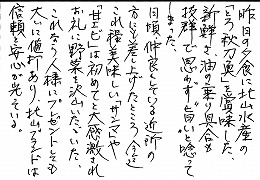 昨日の夕食に北山水産の
「とろ秋刀魚」を賞味した。
新鮮さ、油の乗り具合も
抜群で思わず“旨い”と唸って
しまった。
日頃仲良くしている近所の
方にも差し上げたところ「今迄
これ程美味しい「サンマ」や
「甘エビ」は初めてと大感激され
お礼に野菜を沢山いただいた。
これなら人様にプレゼントしても
大いに値打あり、北山ブランドは
信頼と安心が光っている。